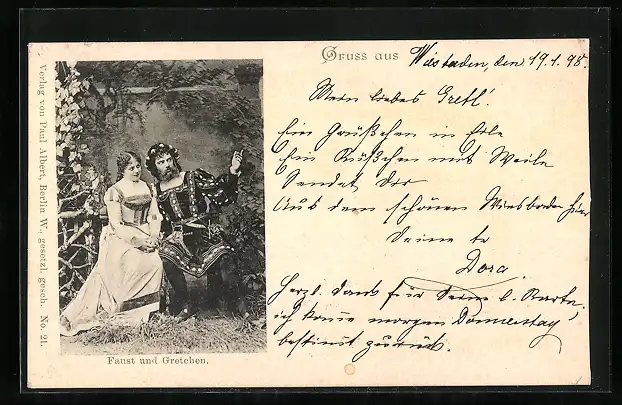 Gruss aus Wiesbaden, den 19.1.98.
Mein liebes Gretl!
Ein Grüßchen in Eile
Ein Küßchen mit Weile
Sendet Dir
Aus dem schönen Wiesbaden hier
Deine
Dora.
Herzl. Dank für Deine l. Karte,
ich komme morgen Donnerstag
bestimmt zurück.
Verlag von Paul Albert, Berlin W., gesetzl. gesch. No. 21.
Faust und Gretchen.